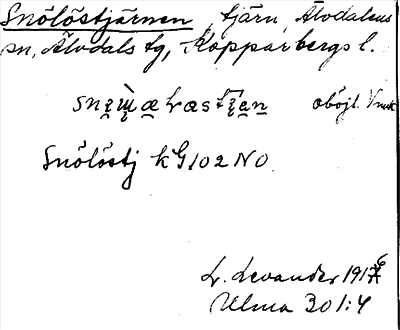 Snölöstjärnen tjärn, Älvdalens
sn, Älvdals tg, Kopparbergs l.
oböjl.
Snölöstj kG102NO
L. Levander 1916
Ulma 301:4